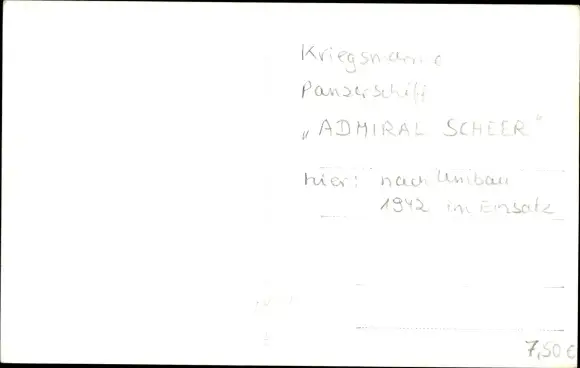 Kriegsmarine
Panzerschiff
„ADMIRAL SCHEER"
hier: nach Umbau
1942 im Einsatz
7,50 €